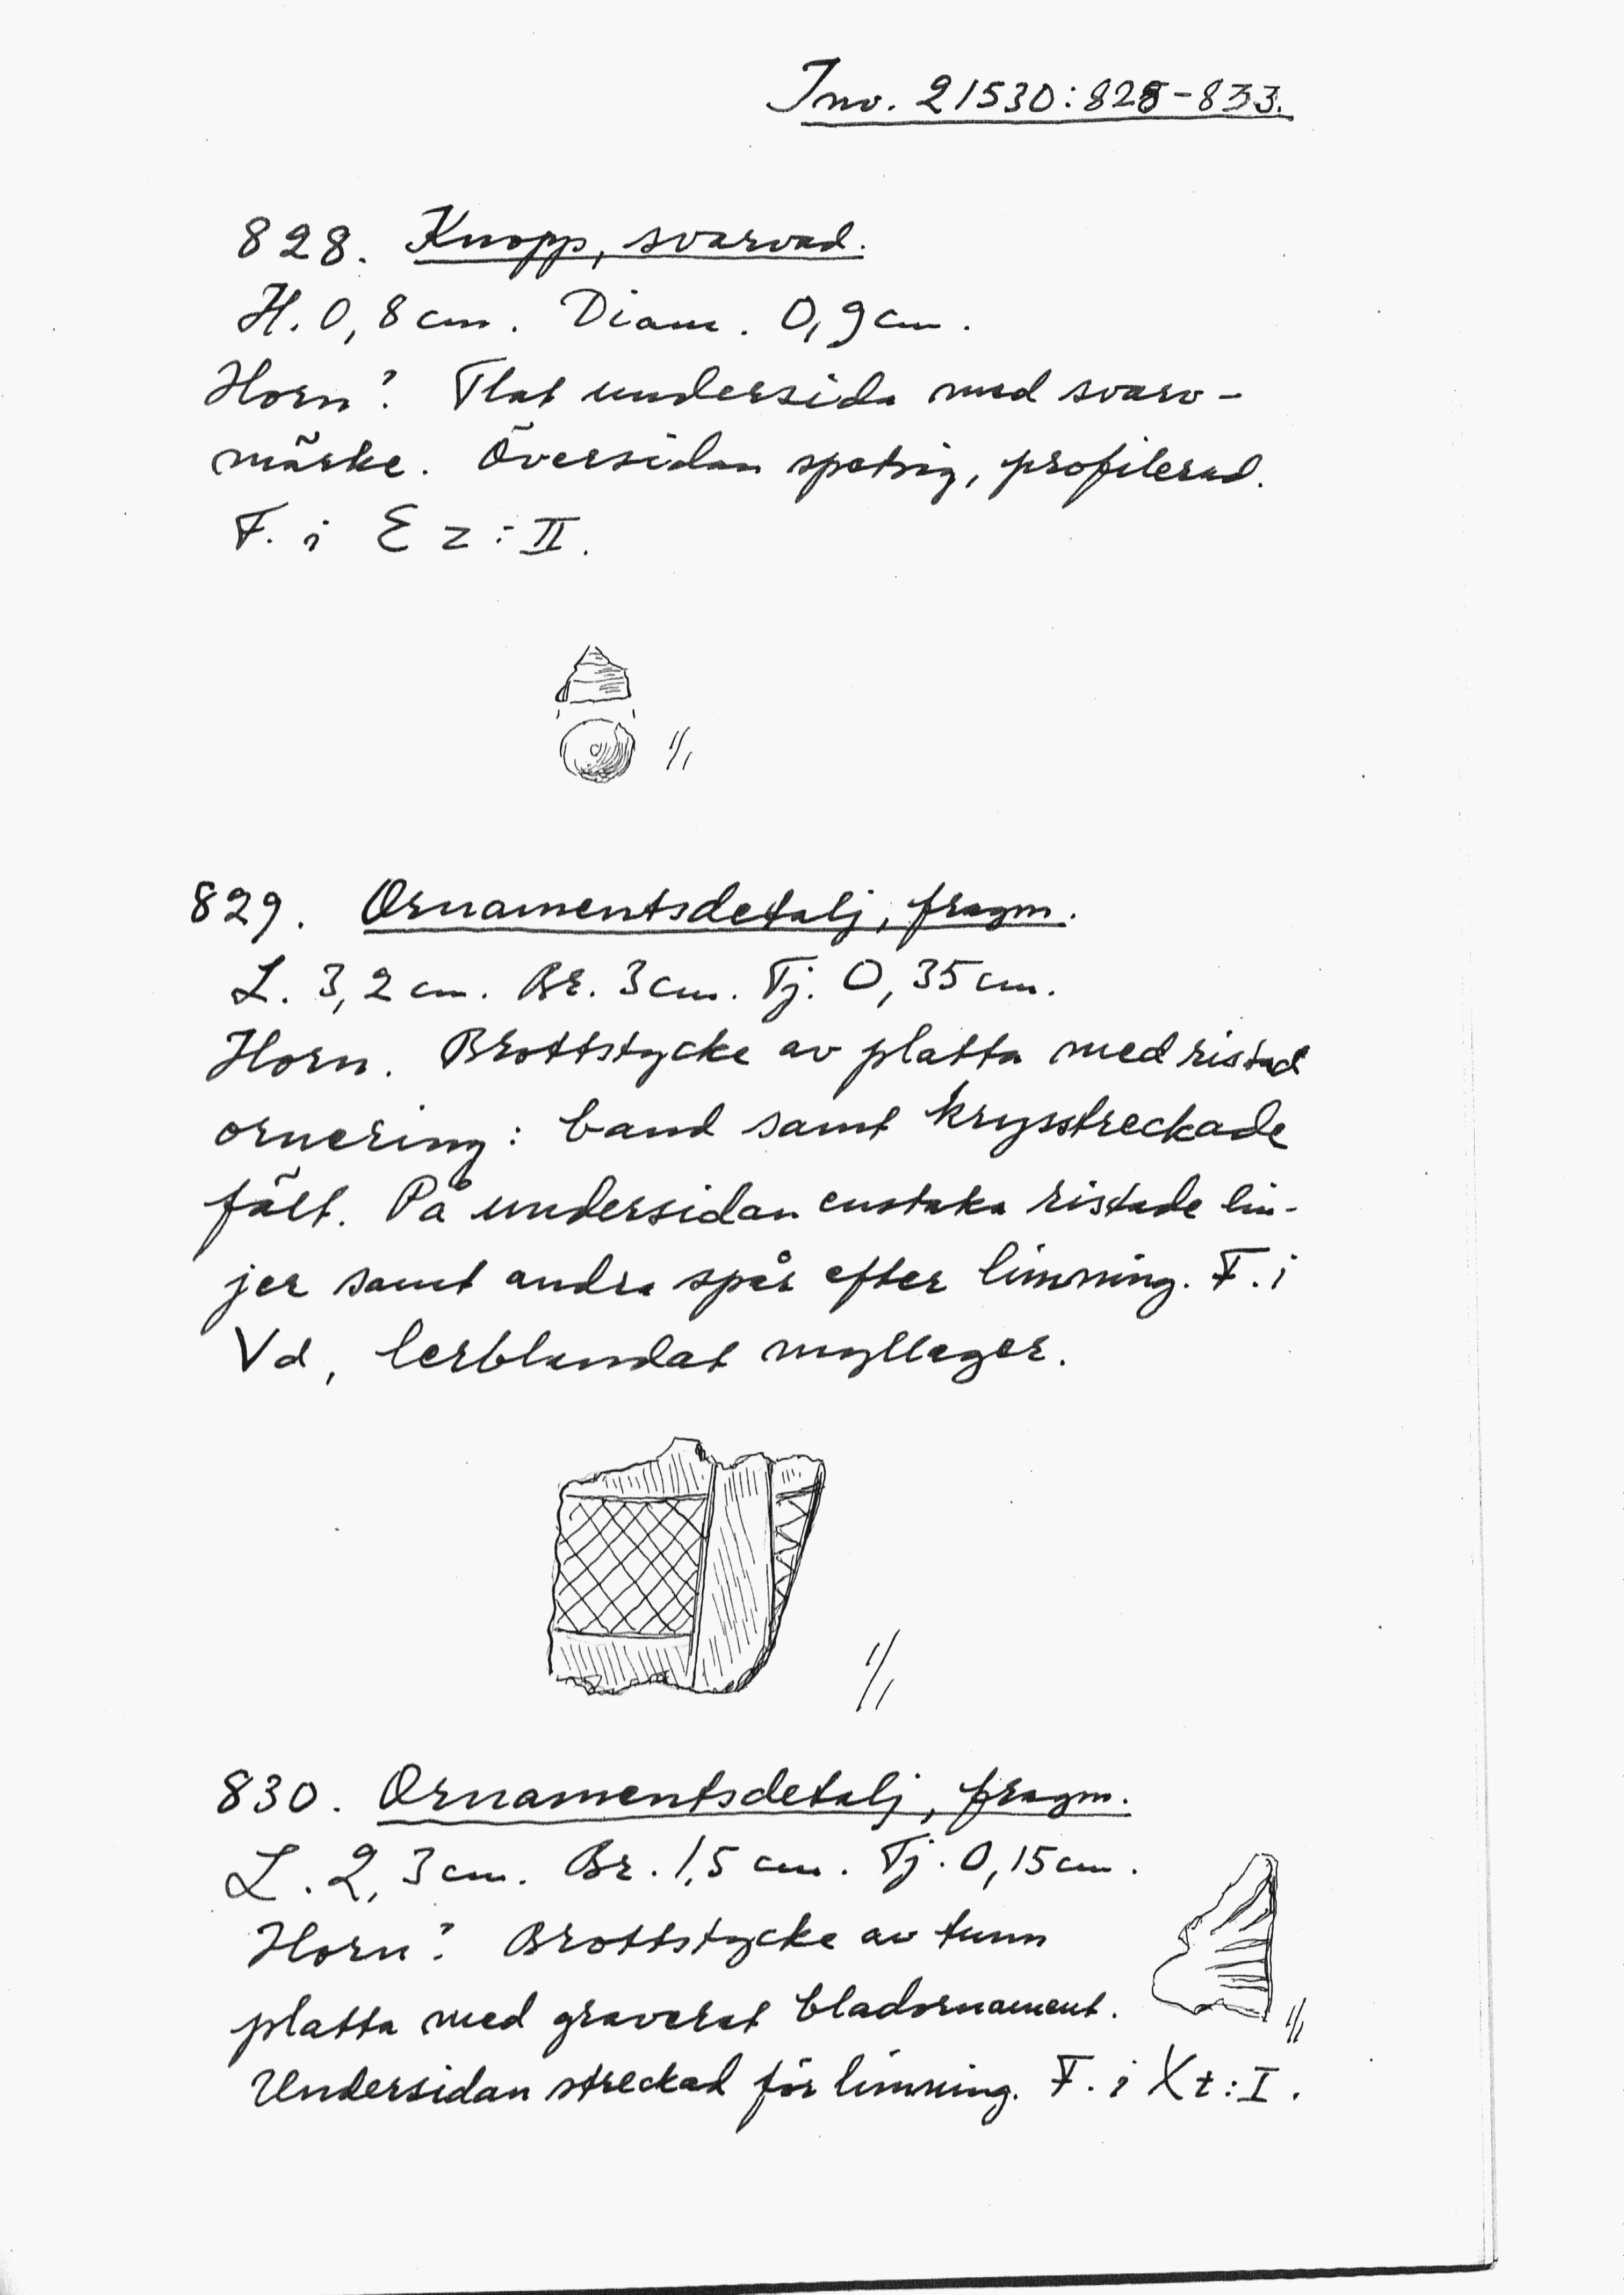 Inv. 21530:828-833.
828. Knopp, svarvad.
H. 0,8 cm. Diam. 0,9 cm.
Horn? Flat undersida med svarv-
märke. Översidan spetsig, profilerad.
F. i Ez:II.
1/1
829. Ornamentsdetalj, fragm.
L. 3,2 cm. Br. 3 cm. Tj. 0,35 cm.
Horn. Brottstycke av platta med ristad
ornering: band samt krysstreckade
fält. På undersidan enstaka ristade lin-
jer samt andra spår efter limning. F. i
Vd, lerblandat myllager.
1/1
830. Ornamentsdetalj, fragm.
L. 2,3 cm. Br. 1,5 cm. Tj. 0,15 cm.
Horn? Brottstycke av tunn
platta med graverat bladornament.
1/1
Undersidan streckad för limning. F. i Xt:I.